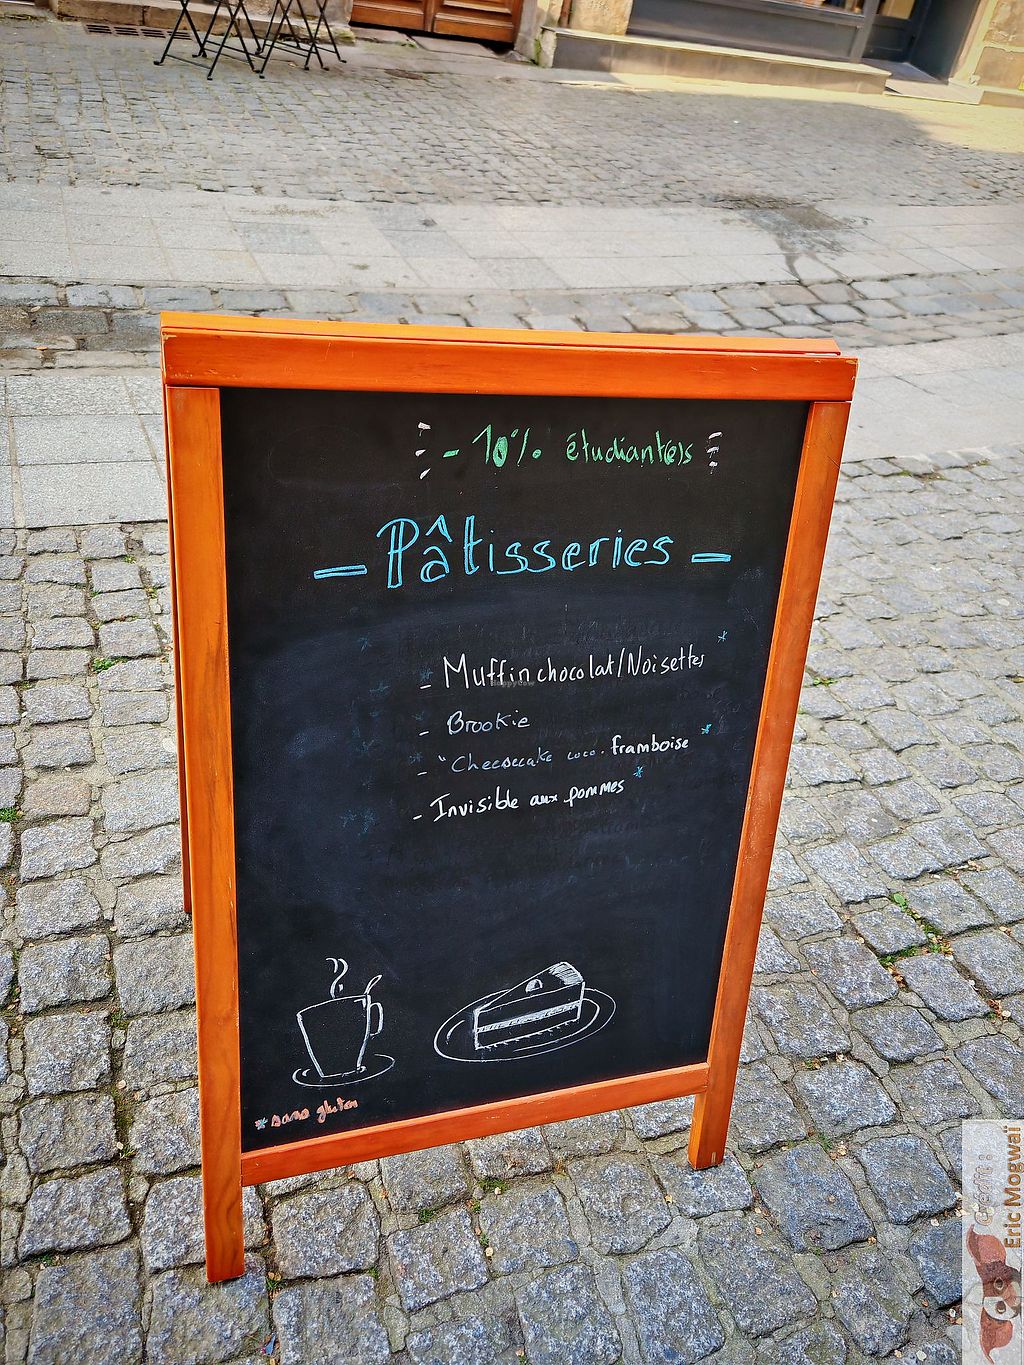 - 10% étudiant(e)s
- Pâtisseries -
- Muffin chocolat/Noisettes *
- Brookie
- "Cheesecake coco. framboise *
- Invisible aux pommes *
* sans gluten
HappyCow
Crédit :
Eric Mogwaï